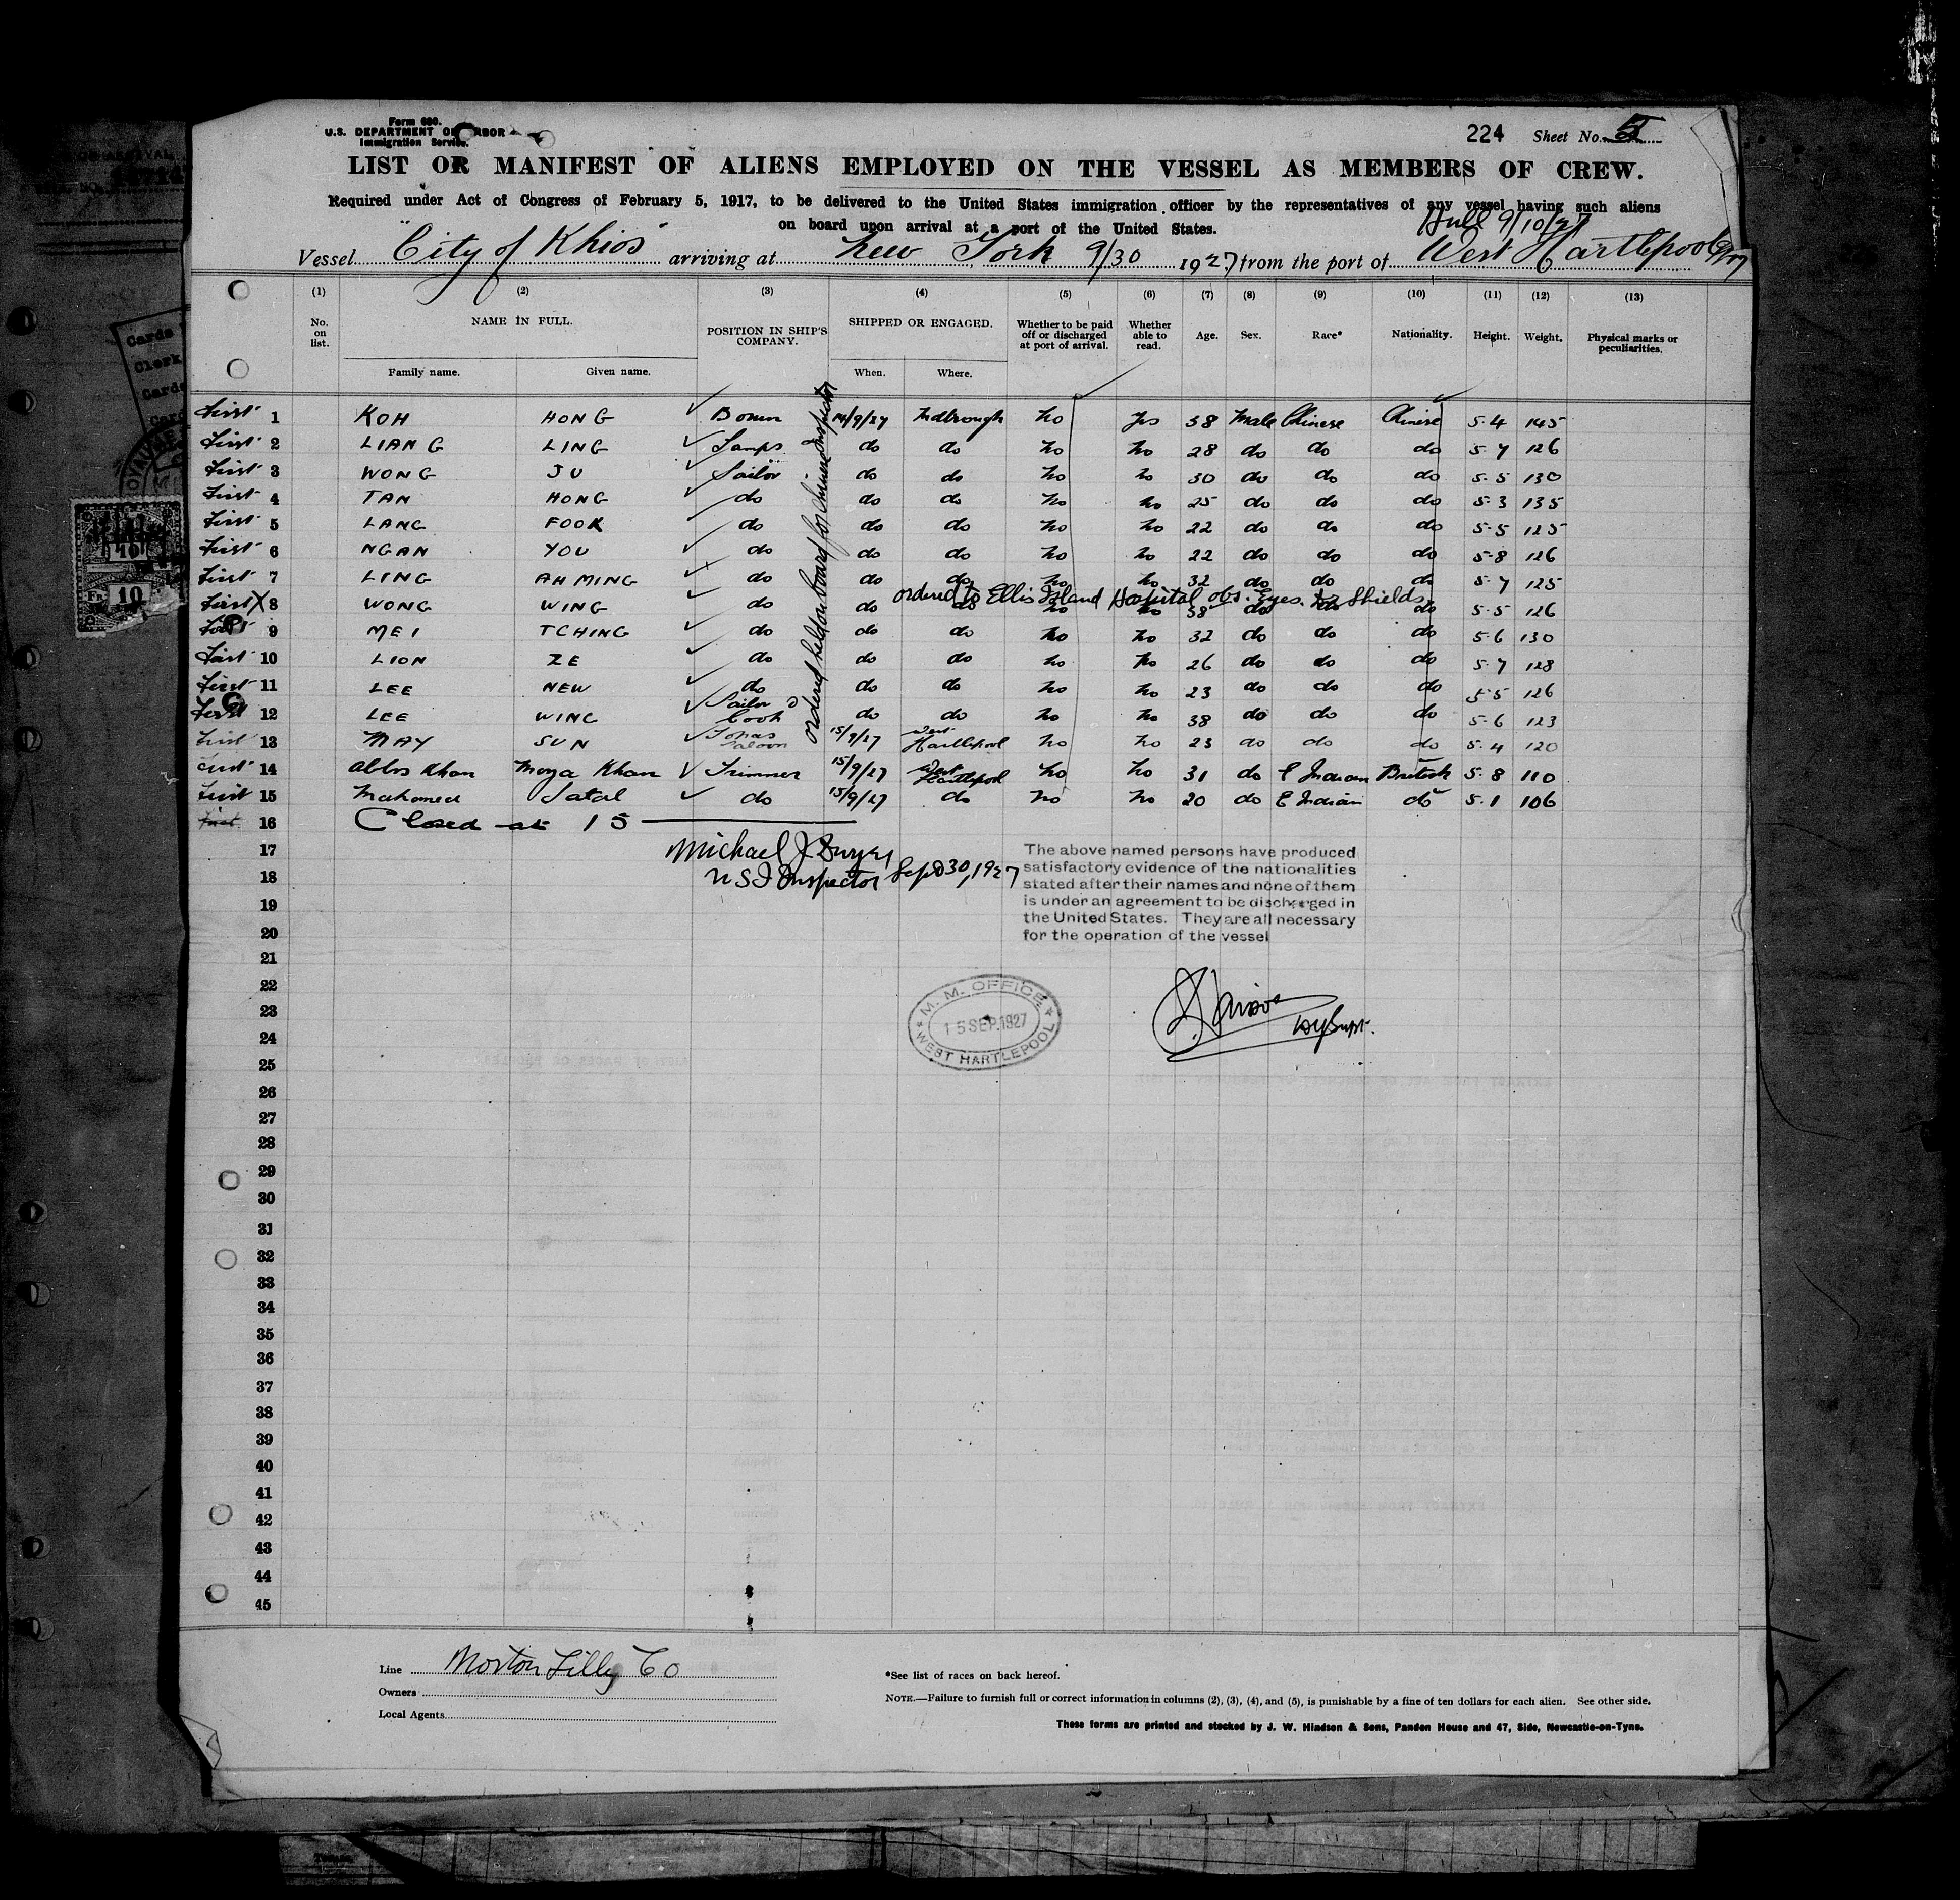 Form 680.
U.S. DEPARTMENT OF LABOR
Immigration Service.
224 Sheet No. 5
LIST OR MANIFEST OF ALIENS EMPLOYED ON THE VESSEL AS MEMBERS OF CREW.
Required under Act of Congress of February 5, 1917, to be delivered to the United States immigration officer by the representatives of any vessel having such aliens
on board upon arrival at a port of the United States.
Hull 9/10/27
Vessel "City of Khios" arriving at New York 9/30 1927, from the port of West Hartlepool
(1) (2) (3) (4) (5) (6) (7) (8) (9) (10) (11) (12) (13)
No. on list. NAME IN FULL. POSITION IN SHIP'S COMPANY. SHIPPED OR ENGAGED. Whether to be paid off or discharged at port of arrival. Whether able to read. Age. Sex. Race* Nationality. Height. Weight. Physical marks or peculiarities.
Family name. Given name. When. Where.
First 1 KOH HONG Bosun 14/9/27 Mdbrough No Yes 38 Male Chinese Chinese 5-4 145
First 2 LIANG LING Lamps do do No No 28 do do do 5-7 126
First 3 WONG JU Sailor do do No No 30 do do do 5-5 130
First 4 TAN HONG do do do No No 25 do do do 5-3 135
First 5 LANG FOOK do do do No No 22 do do do 5-5 125
First 6 NGAN YOU do do do No No 22 do do do 5-8 126
First 7 LING AH MING do do do No No 32 do do do 5-7 125
ordered to Ellis Island Hospital obs. Eyes. Shields
First X 8 WONG WING do do do No No 38 do do do 5-5 126
9 MEI TCHING do do do No No 32 do do do 5-6 130
First 10 LION ZE do do do No No 26 do do do 5-7 128
First 11 LEE NEW do do do No No 23 do do do 5-5 126
First 12 LEE WING Sailor Cook do do No No 38 do do do 5-6 123
First 13 MAY SUN Saloon 15/9/27 West Hartlepool No No 23 do do do 5-4 120
First 14 Abbos Khan Moya Khan Trimmer 15/9/27 West Hartlepool No No 31 do E Indian British 5-8 110
First 15 Mahomed Satal do 15/9/27 do No No 20 do E Indian do 5-1 106
ordered held on board for Chinese Inspector
16 Closed at 15
17
Michael J. Dwyer
18
U S I Inspector Sept 30, 1927
The above named persons have produced
satisfactory evidence of the nationalities
stated after their names and none of them
is under an agreement to be discharged in
the United States. They are all necessary
for the operation of the vessel
19
20
21
22
23
24
M. M. OFFICE
15 SEP. 1927
WEST HARTLEPOOL
Dy Supt.
25
26
27
28
29
30
31
32
33
34
35
36
37
38
39
40
41
42
43
44
45
Line Norton Lilly Co
Owners
Local Agents
*See list of races on back hereof.
NOTE.—Failure to furnish full or correct information in columns (2), (3), (4), and (5), is punishable by a fine of ten dollars for each alien. See other side.
These forms are printed and stocked by J. W. Hindson & Sons, Pandon House and 47, Side, Newcastle-on-Tyne.